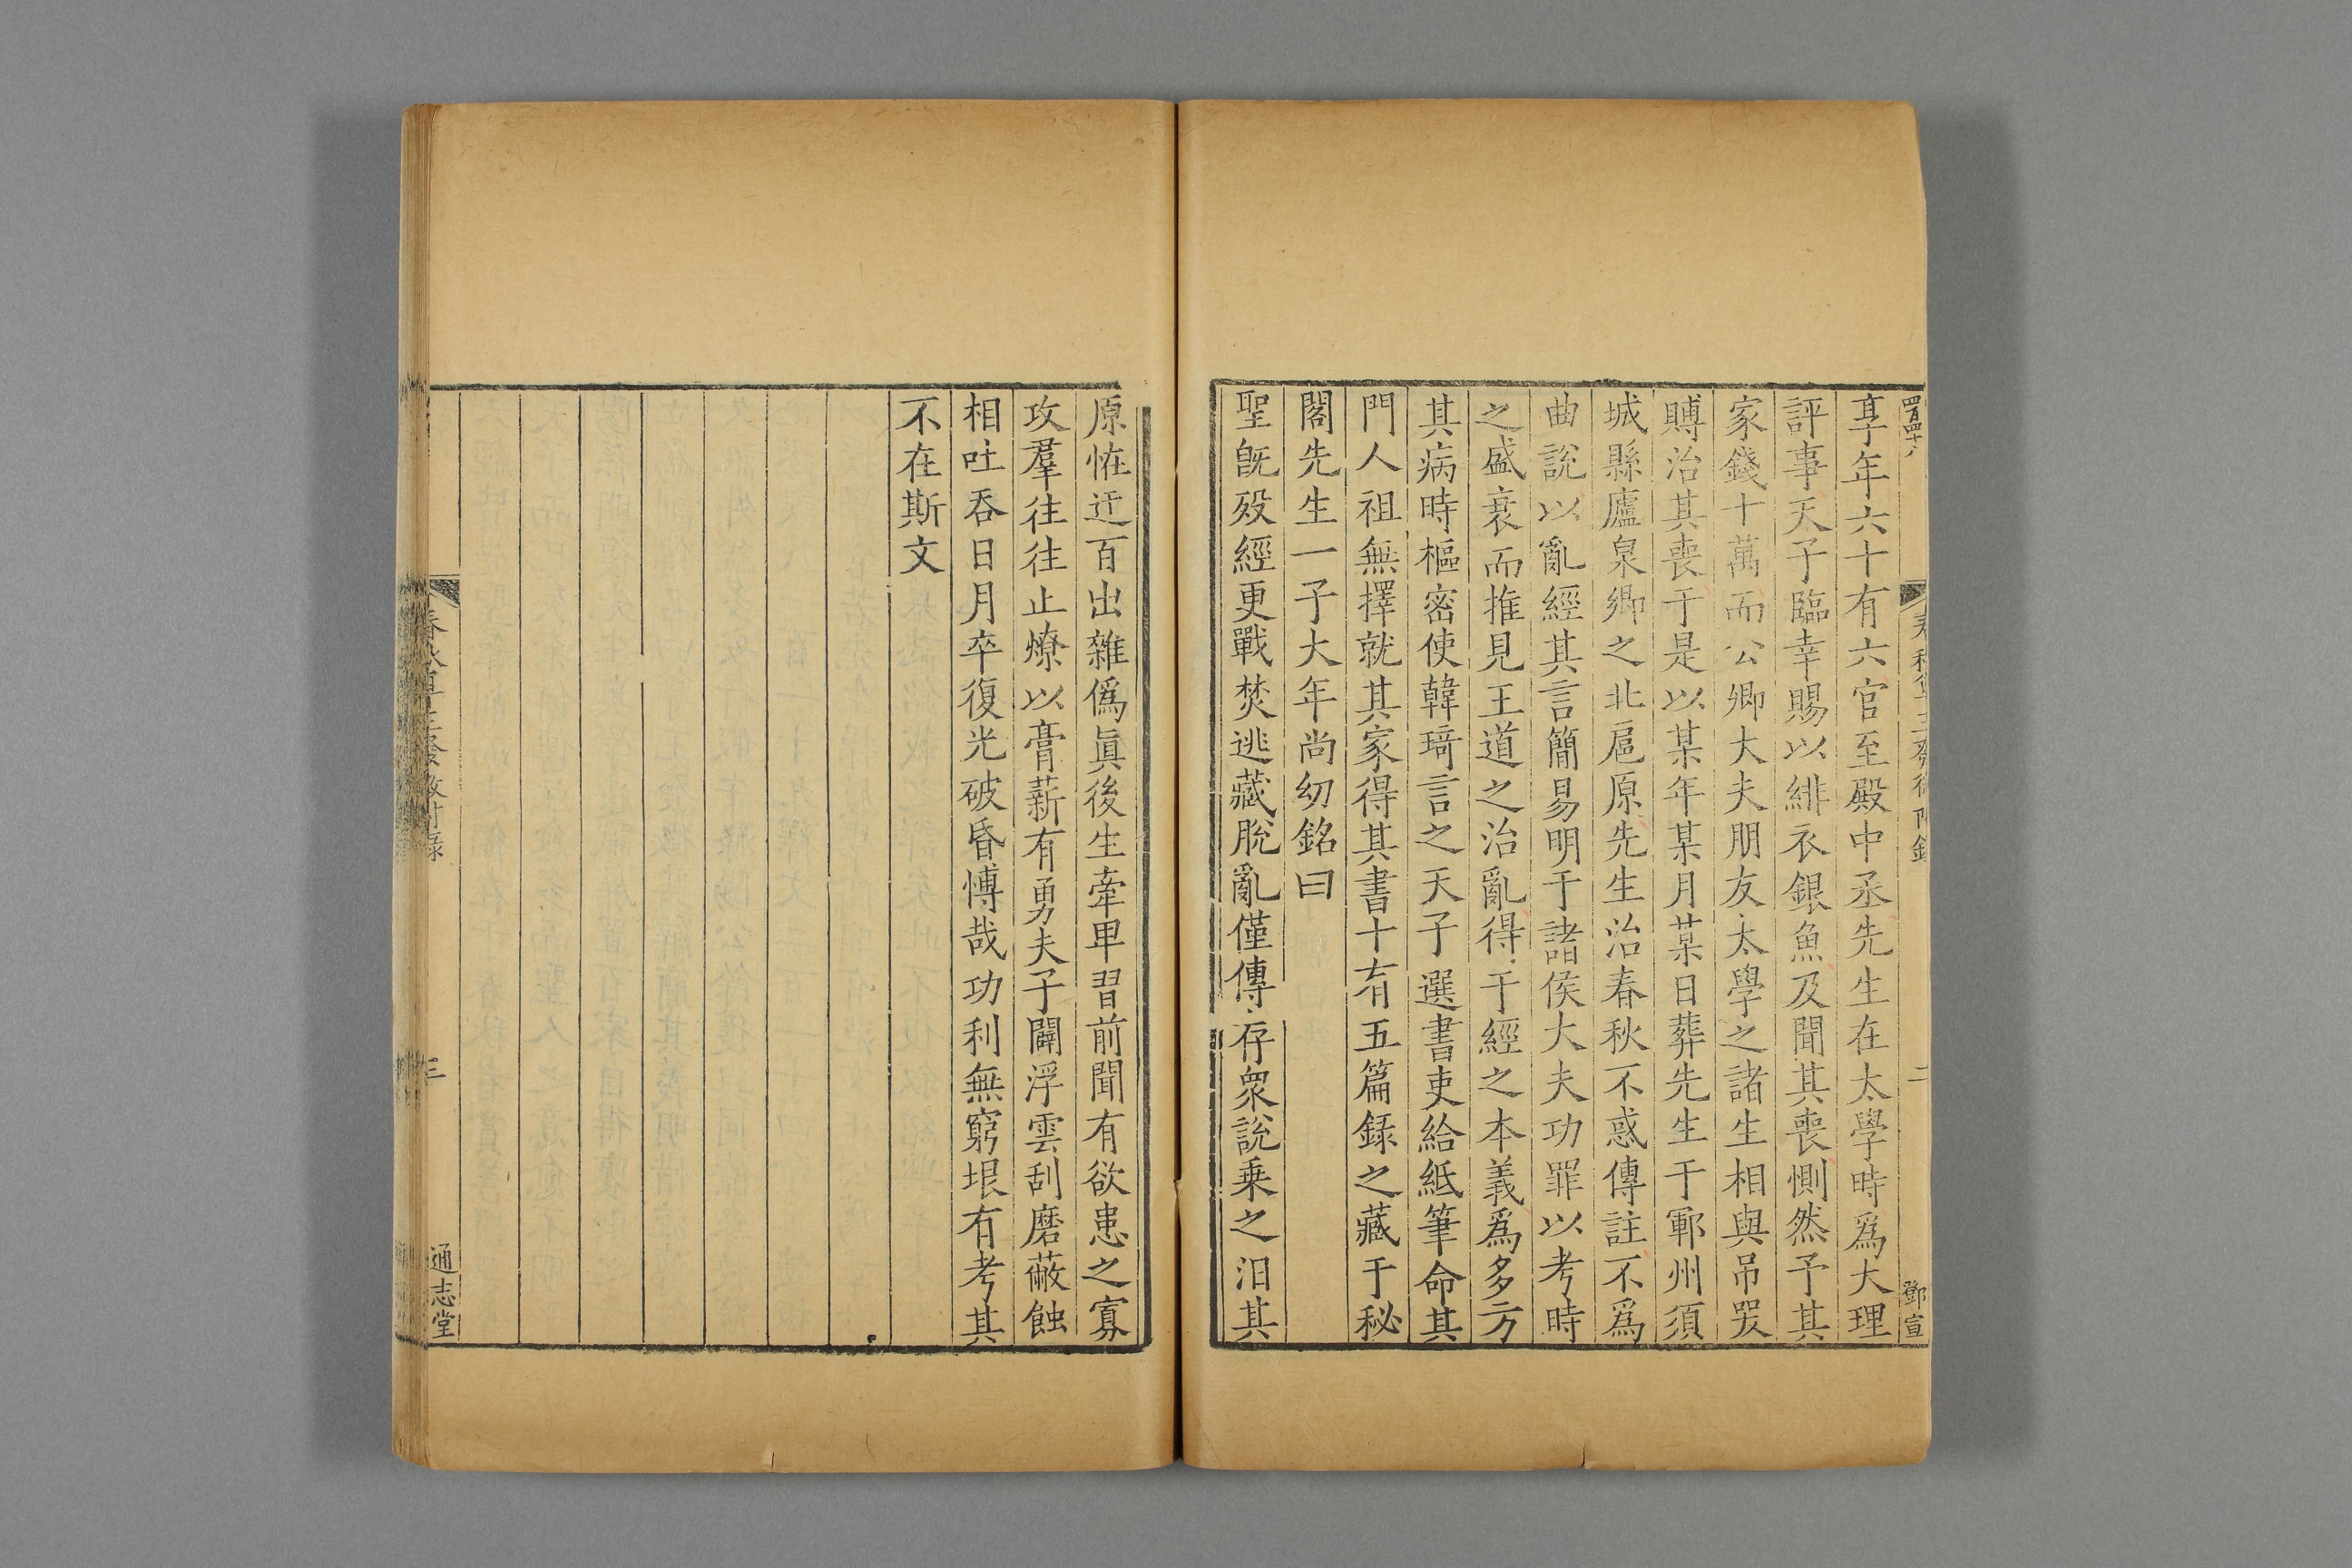 享年六十有六官至殿中丞先生在太學時爲大理
評事天子臨幸賜以緋衣銀魚及聞其喪惻然予其
家錢十萬而公卿大夫朋友太學之諸生相與吊哭
賻治其喪于是以某年某月某日葬先生于鄆州須
城縣廬泉鄉之北扈原先生治春秋不惑傳註不爲
曲說以亂經其言簡易明于諸侯大夫功罪以考時
之盛衰而推見王道之治亂得于經之本義爲多方
其病時樞密使韓琦言之天子選書吏給紙筆命其
門人祖無擇就其家得其書十有五篇録之藏于秘
閣先生一子大年尚幼銘曰
聖旣殁經更戰焚逃藏脫亂僅傳存衆說乗之汨其
二
鄧宣
原恠迂百出雜僞眞後生牽卑習前聞有欲患之寡
攻羣往往止燎以膏薪有勇夫子闢浮雲刮磨蔽蝕
相吐吞日月卒復光破昏愽哉功利無窮垠有考其
不在斯文
三
通志堂